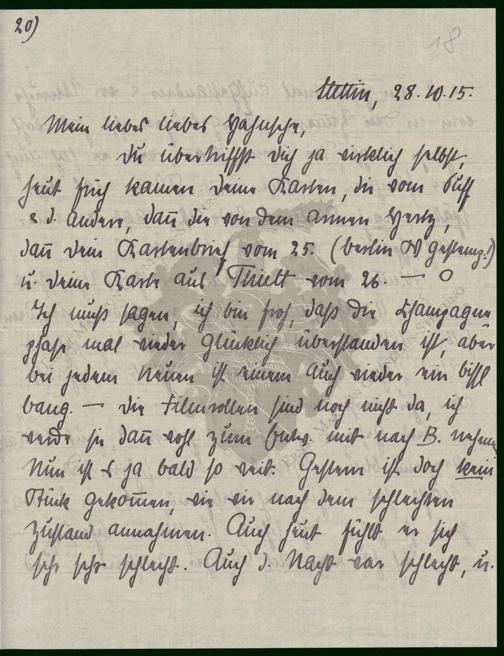 20)
18
Stettin, 28.10.15.
Mein liebes liebes Hahnsche,
Du übertriffst Dich ja wirklich selbst,
heut früh kamen Deine Karten, die vom Puff
& d. andere, dan̄ die von dem armen Hertz,
dan̄ Dein Kartenbrief vom 25. (Berlin NW gestemp.!)
u. Deine Karte aus Thielt vom 26. — O
Ich muß sagen, ich bin froh, daß die Champagne
phase mal wieder glücklich überstanden ist, aber
bei jedem Neuen ist einem auch wieder ein bißl
bang. — Die Filmrollen sind noch nicht da, ich
werde sie dan̄ wohl zum Entw. mit nach B. nehmen
Nun ist's ja bald so weit. Gestern ist doch kein
Stück gekom̄en, wie wir nach dem schlechten
Zustand annahmen. Auch heut fühlt er sich
sehr sehr schlecht. Auch d. Nacht war schlecht, u.